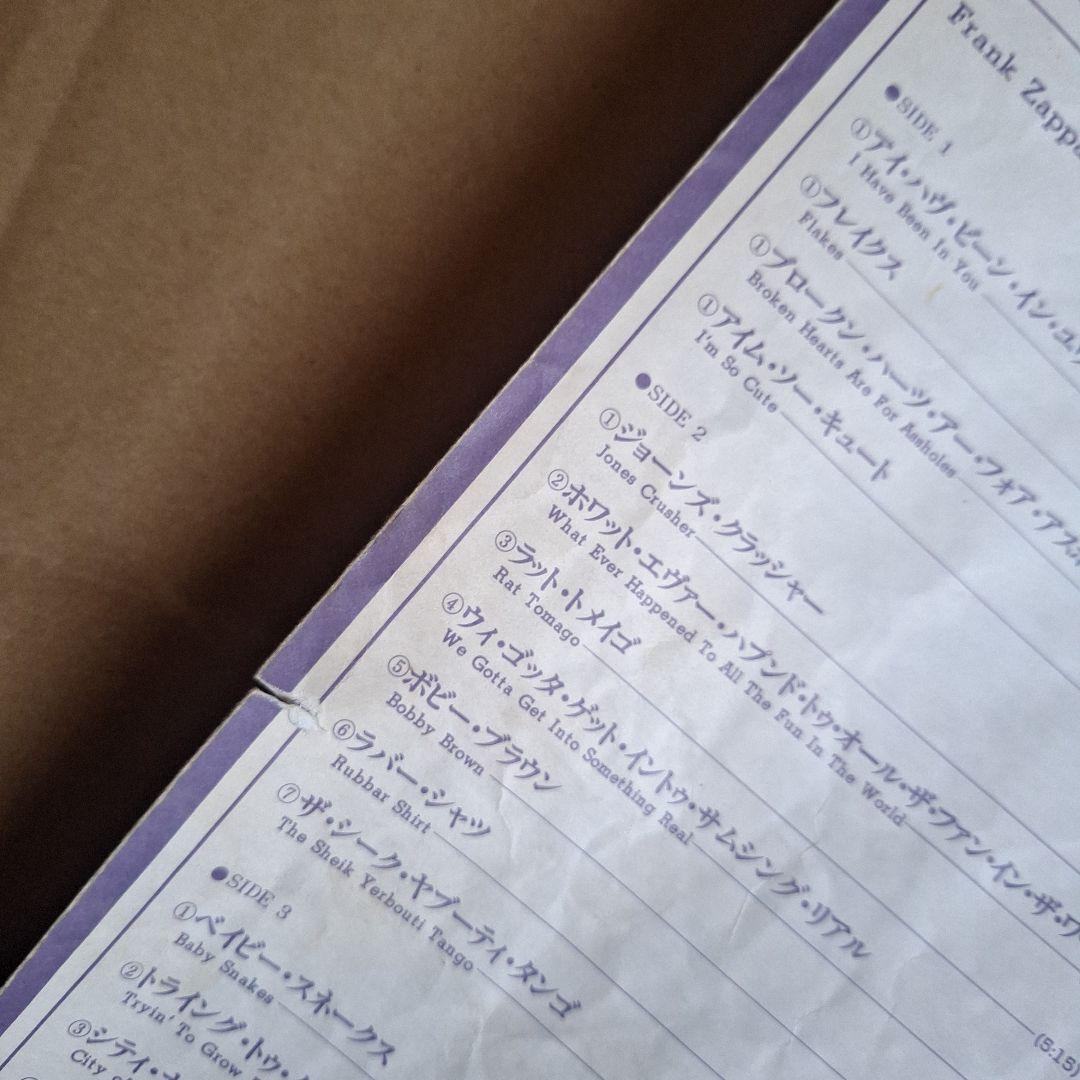 Frank Zappa
●SIDE 1
①アイ・ハヴ・ビーン・イン・ユウ
I Have Been In You
①フレイクス
Flakes
①ブロークン・ハーツ・アー・フォア・アスホ
Broken Hearts Are For Assholes
①アイム・ソー・キュート
I'm So Cute
●SIDE 2
①ジョーンズ・クラッシャー
Jones Crusher
②ホワット・エヴァー・ハプンド・トゥ・オール・ザ・ファン・イン・ザ・ワ
What Ever Happened To All The Fun In The World
③ラット・トメイゴ
Rat Tomago
④ウィ・ゴッタ・ゲット・イントゥ・サムシング・リアル
We Gotta Get Into Something Real
⑤ボビー・ブラウン
Bobby Brown
⑥ラバー・シャツ
Rubbar Shirt
⑦ザ・シーク・ヤブーティ・タンゴ
The Sheik Yerbouti Tango
(5:15)
●SIDE 3
①ベイビー・スネークス
Baby Snakes
②トライング・トゥ・
Tryin' To Grow
③シティ・
City